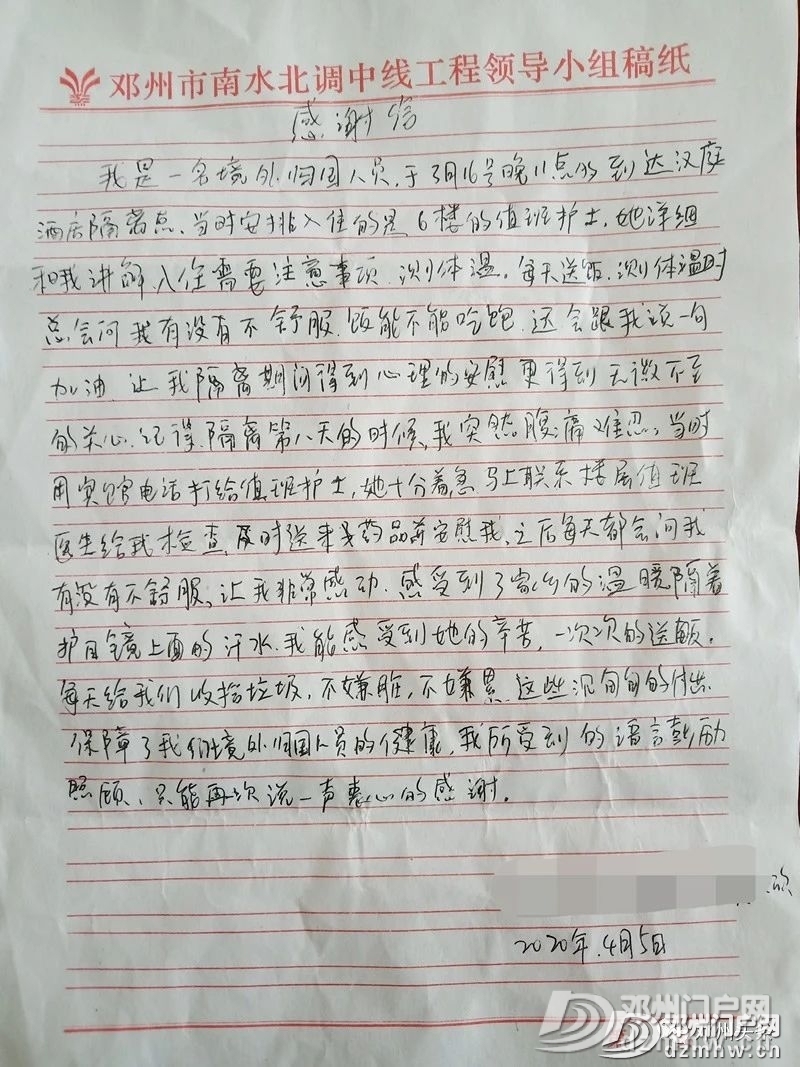 邓州市南水北调中线工程领导小组稿纸
感谢信
我是一名境外归国人员,于3月16号晚11点的到达汉庭
酒店隔离点、当时安排入住的是6楼的值班护士,她详细
和我讲解入住需要注意事项.测体温,每天送饭.测体温时
总会问我有没有不舒服.饭能不能吃饱.还会跟我说一句
加油.让我隔离期间得到心理的安慰更得到无微不至
的关心.记得.隔离第八天的时候,我突然腹痛难忍。当时
用宾馆电话打给值班护士,她十分着急.马上联系楼层值班
医生给我检查.及时送来药品并安慰我,之后每天都会问我
有没有不舒服、让我非常感动.感受到了家的温暖隔着
护目镜上面的汗水.我能感受到她的辛苦,一次次的送饭.
每天给我们收拾垃圾,不嫌脏,不嫌累.这些沉甸甸的付出
保障了我们境外归国人员的健康,我所受到的语言鼓励
照顾、只能再次说一声衷心的感谢。
欣
2020年.4月5日
邓州门户网
dzmhw.cn